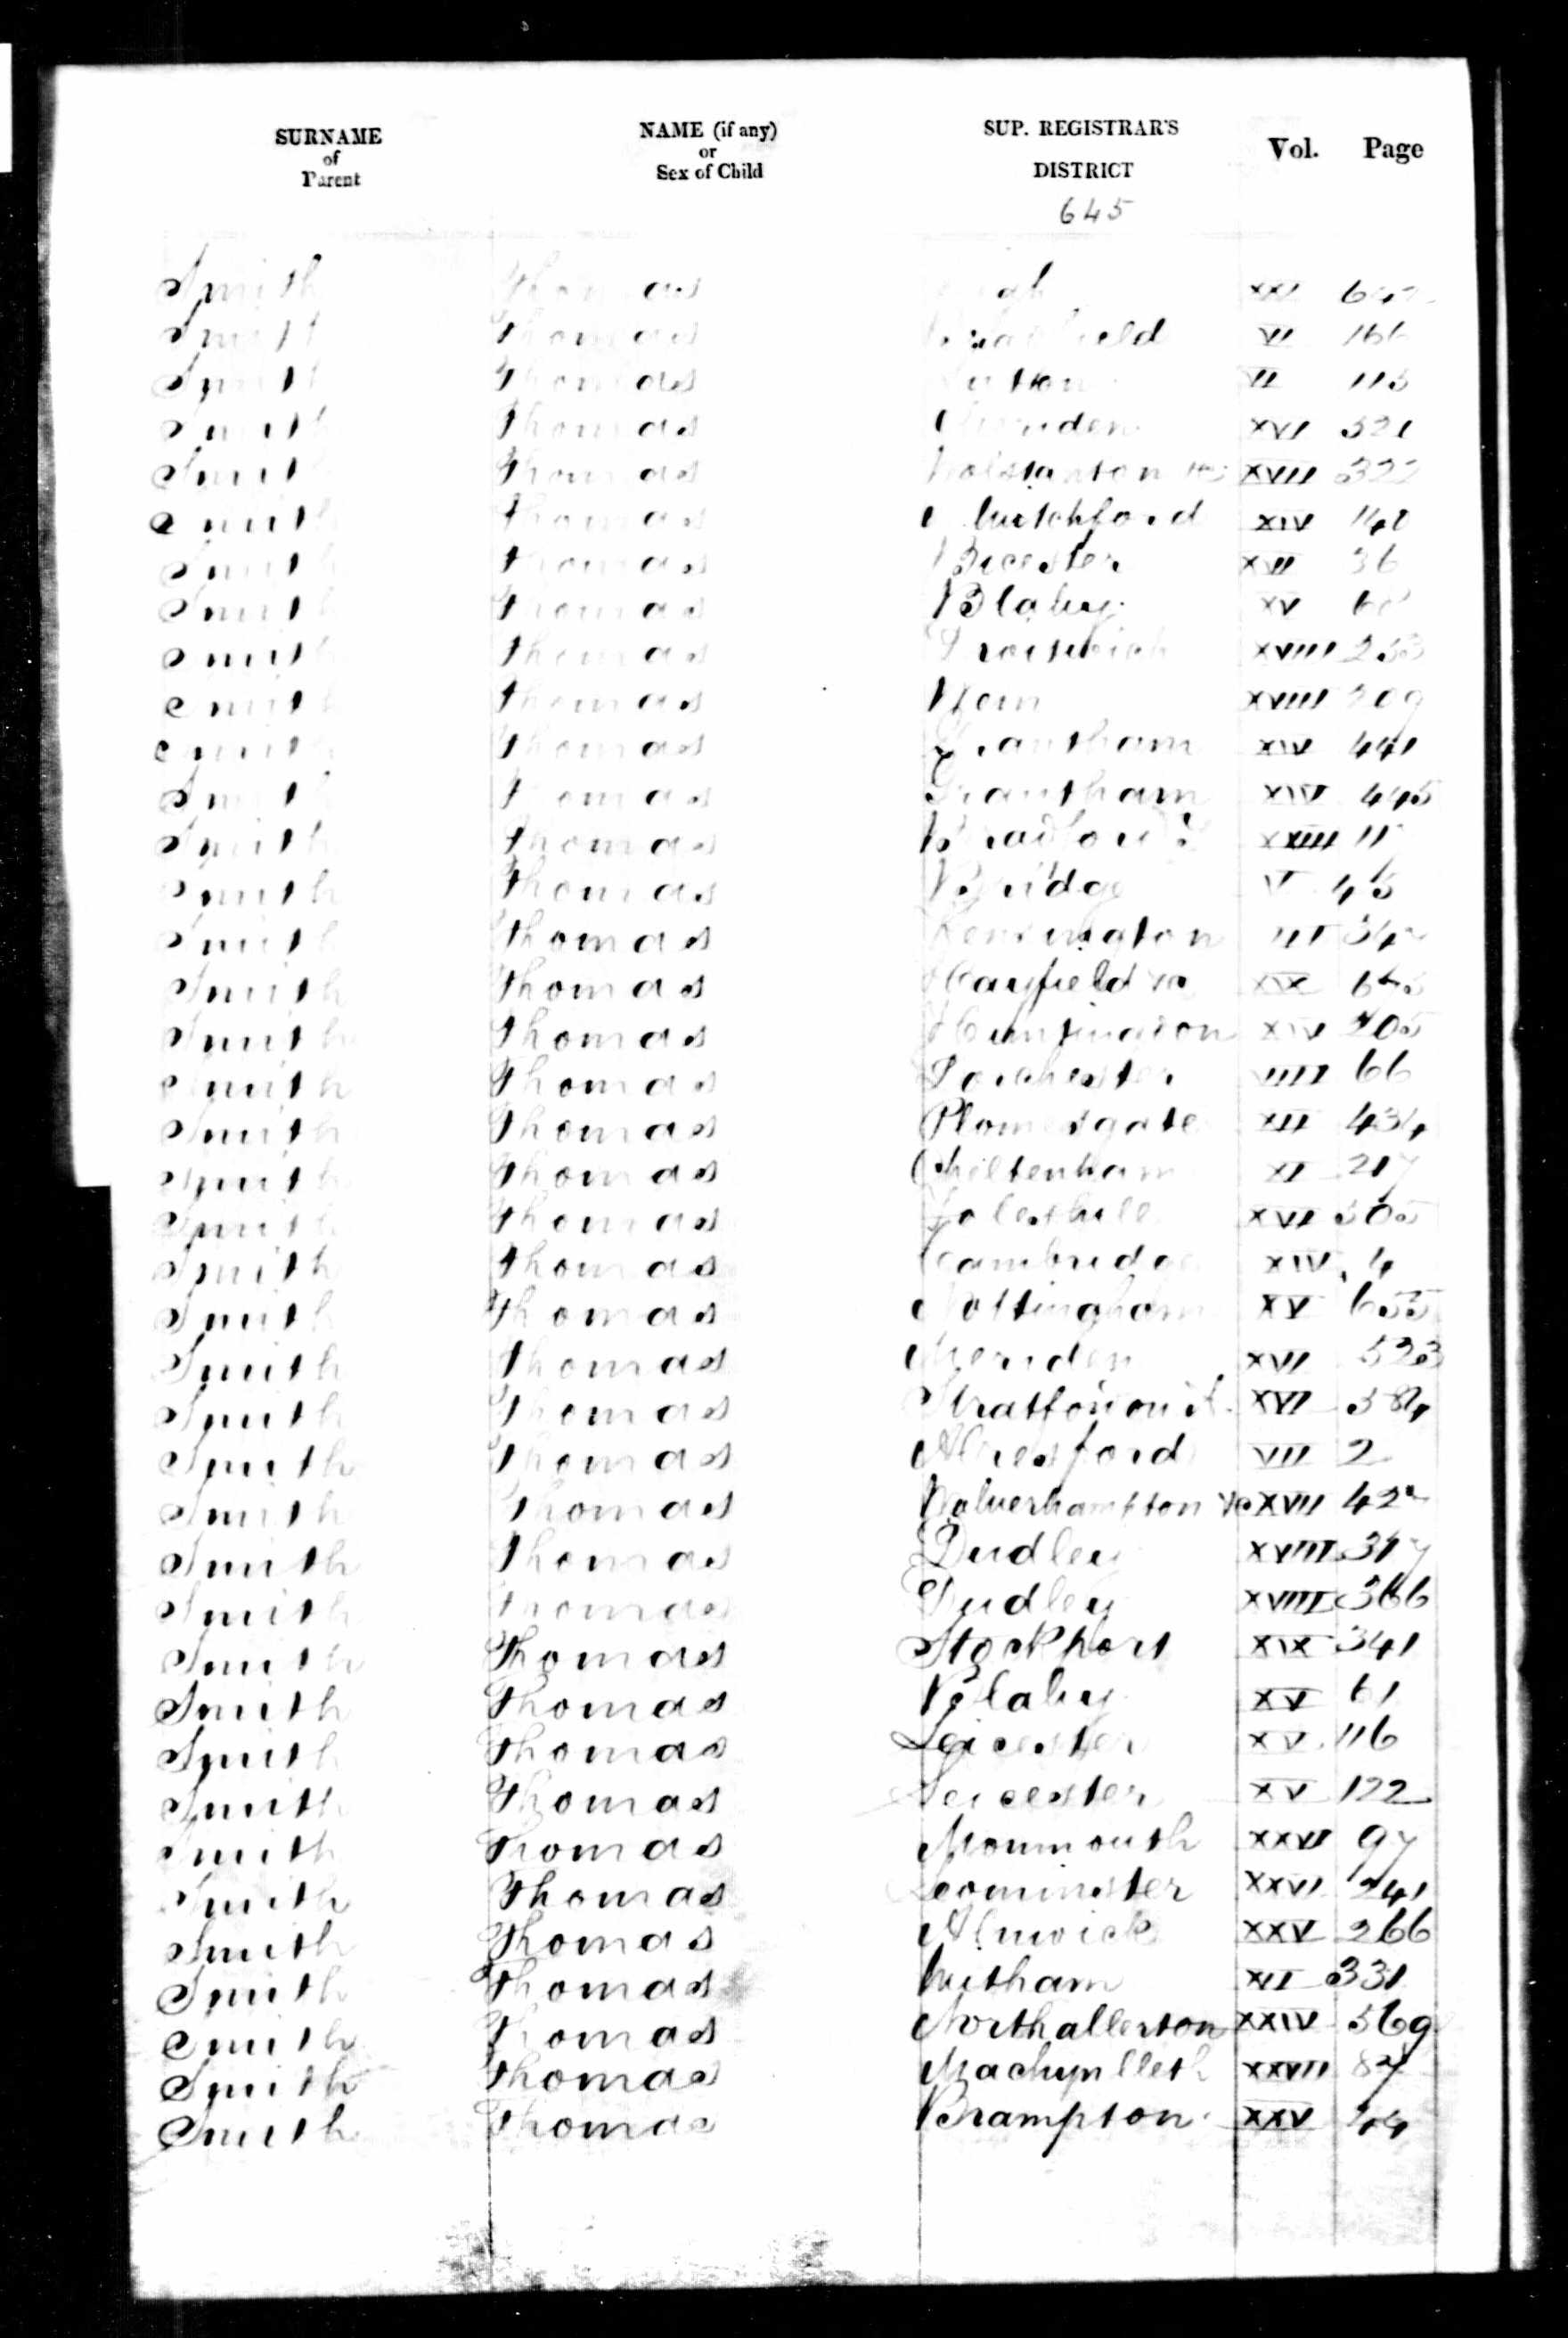 SURNAME of Parent NAME (if any) or Sex of Child SUP. REGISTRAR'S DISTRICT Vol. Page
645
Smith Thomas XXI
Smith Thomas VI 166
Smith Thomas VI 113
Smith Thomas Meriden XVI 321
Smith Thomas Wolstanton &c XVII 322
Smith Thomas Whitchford XIV
Smith Thomas Bicester XVI 36
Smith Thomas Blaby XV
Smith Thomas Droitwich XVIII 233
Smith Thomas Wem XVIII 209
Smith Thomas Grantham XIV 441
Smith Thomas Grantham XIV 445
Smith Thomas XXIII
Smith Thomas Bridge V
Smith Thomas Kensington III
Smith Thomas Hayfield &c XIX
Smith Thomas Huntingdon XIV 205
Smith Thomas Dorchester VIII 66
Smith Thomas Plomesgate XII 434
Smith Thomas Cheltenham XI 217
Smith Thomas Foleshill XVI 305
Smith Thomas Cambridge XIV 4
Smith Thomas Nottingham XV 655
Smith Thomas Meriden XVI 523
Smith Thomas Stratford on A. XVI 584
Smith Thomas Alresford VII 2
Smith Thomas Wolverhampton &c XVII
Smith Thomas Dudley XVIII 317
Smith Thomas Dudley XVIII 366
Smith Thomas Stockport XIX 341
Smith Thomas Blaby XV 61
Smith Thomas Leicester XV 116
Smith Thomas Leicester XV 122
Smith Thomas Monmouth XXVI 97
Smith Thomas Leominster XXVI 241
Smith Thomas Alnwick XXV 266
Smith Thomas Witham XII 331
Smith Thomas Northallerton XXIV 569
Smith Thomas Machynlleth XXVII
Smith Thomas Brampton XXV